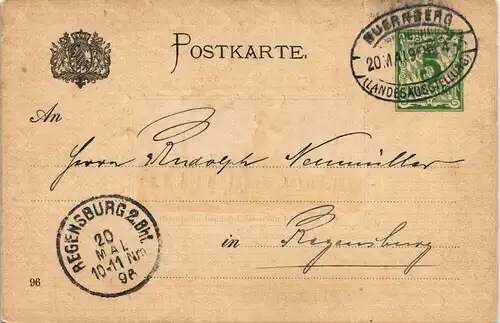 POSTKARTE.
NUERNBERG
20 MAI 96
(LANDESAUSSTELLUNG)
5
An
Herrn Rudolph Neumüller
in Regensburg
REGENSBURG 2. Bhf.
20
MAI.
10-11 Nm
96
96